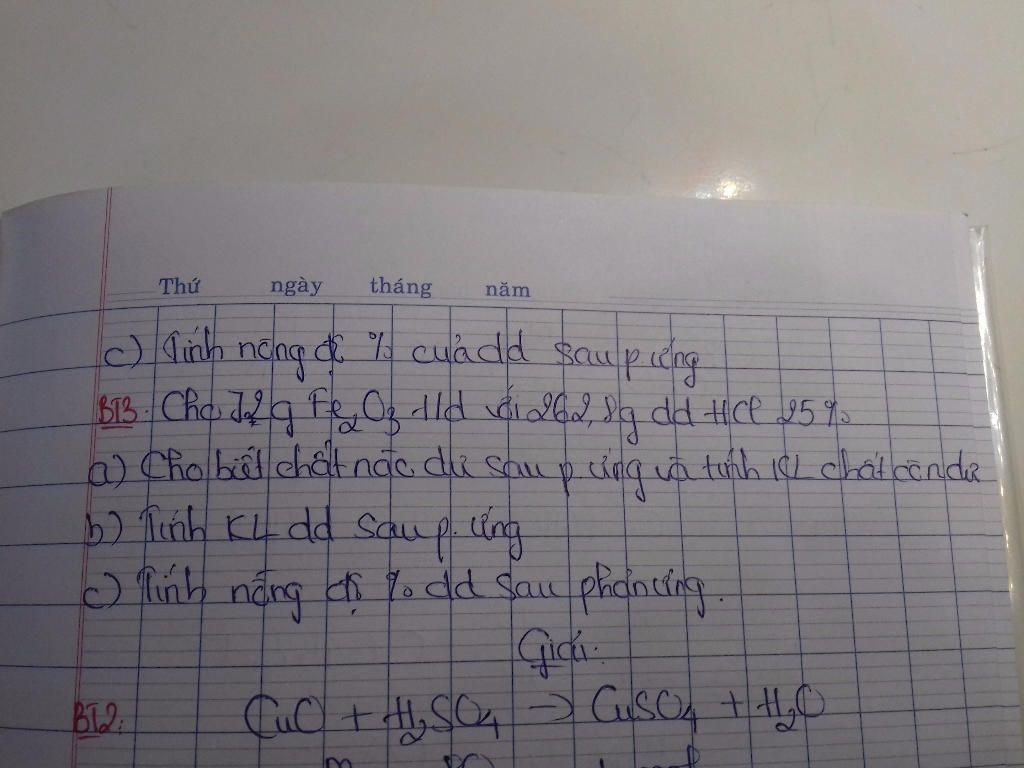 Thứ ngày tháng năm
c) Tính nồng độ % của dd sau p ứng
BT3: Cho g Fe2O3 t/d với 262,8g dd HCl 25%
a) Cho biết chất nào dư sau p. ứng và tính KL chất còn dư
b) Tính KL dd sau p. ứng
c) Tính nồng độ % dd sau phản ứng.
Giải:
BT2: CuO + H2SO4 → CuSO4 + H2O